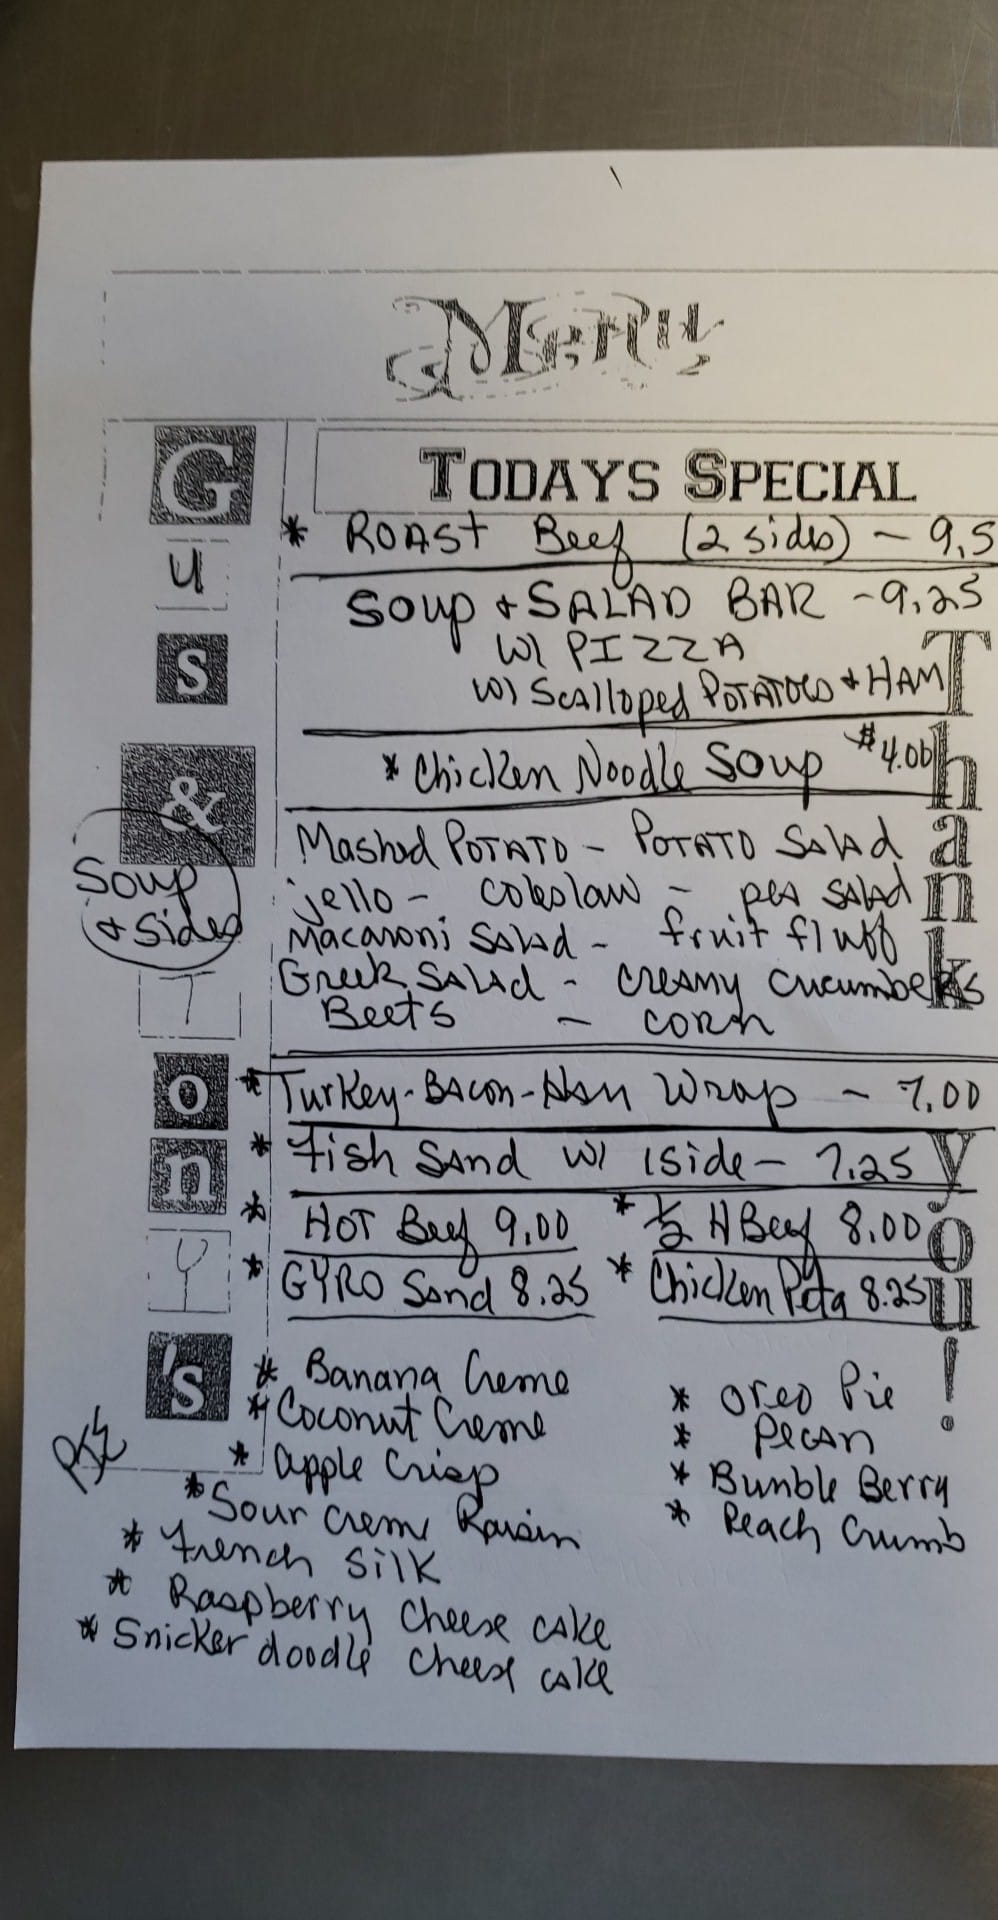 Menu
Gus & Tony's
TODAYS SPECIAL
* ROAST Beef (2 sides) - 9.5
Soup & SALAD BAR - 9.25
W/ PIZZA
W/ Scalloped POTATOES & HAM
* Chicken Noodle Soup $4.00
Soup & Sides
Mashed POTATO - POTATO Salad
jello - coleslaw - pea salad
Macaroni Salad - fruit fluff
Greek Salad - creamy cucumbers
Beets - corn
* Turkey-Bacon-Ham Wrap - 7.00
* Fish Sand w/ 1 side - 7.25
* HOT Beef 9.00 * 1/2 H Beef 8.00
* GYRO Sand 8.25 * Chicken Pita 8.25
Thank you!
* Banana Creme
* Coconut Creme
* apple Crisp
* Sour creme Raisin
* French SILK
* Raspberry cheese cake
* Snickerdoodle cheese cake
* Oreo Pie
* Pecan
* Bumble Berry
* Peach Crumb